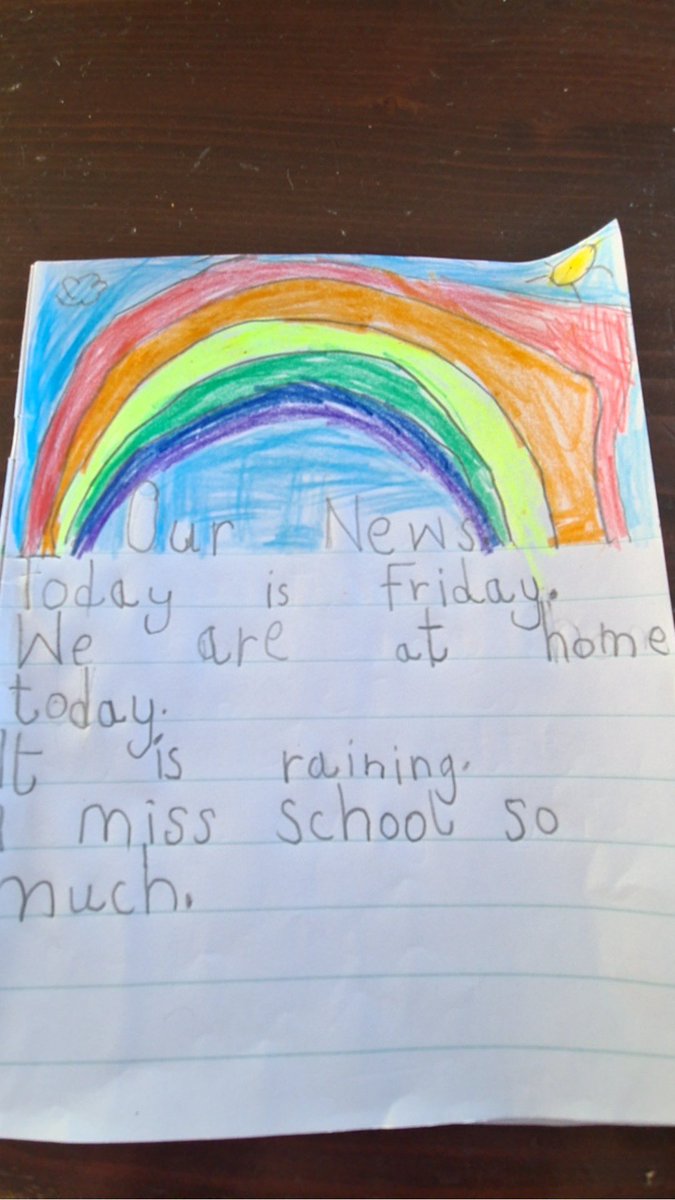 Our News
Today is Friday.
We are at home
today.
It is raining.
I miss school so
much.